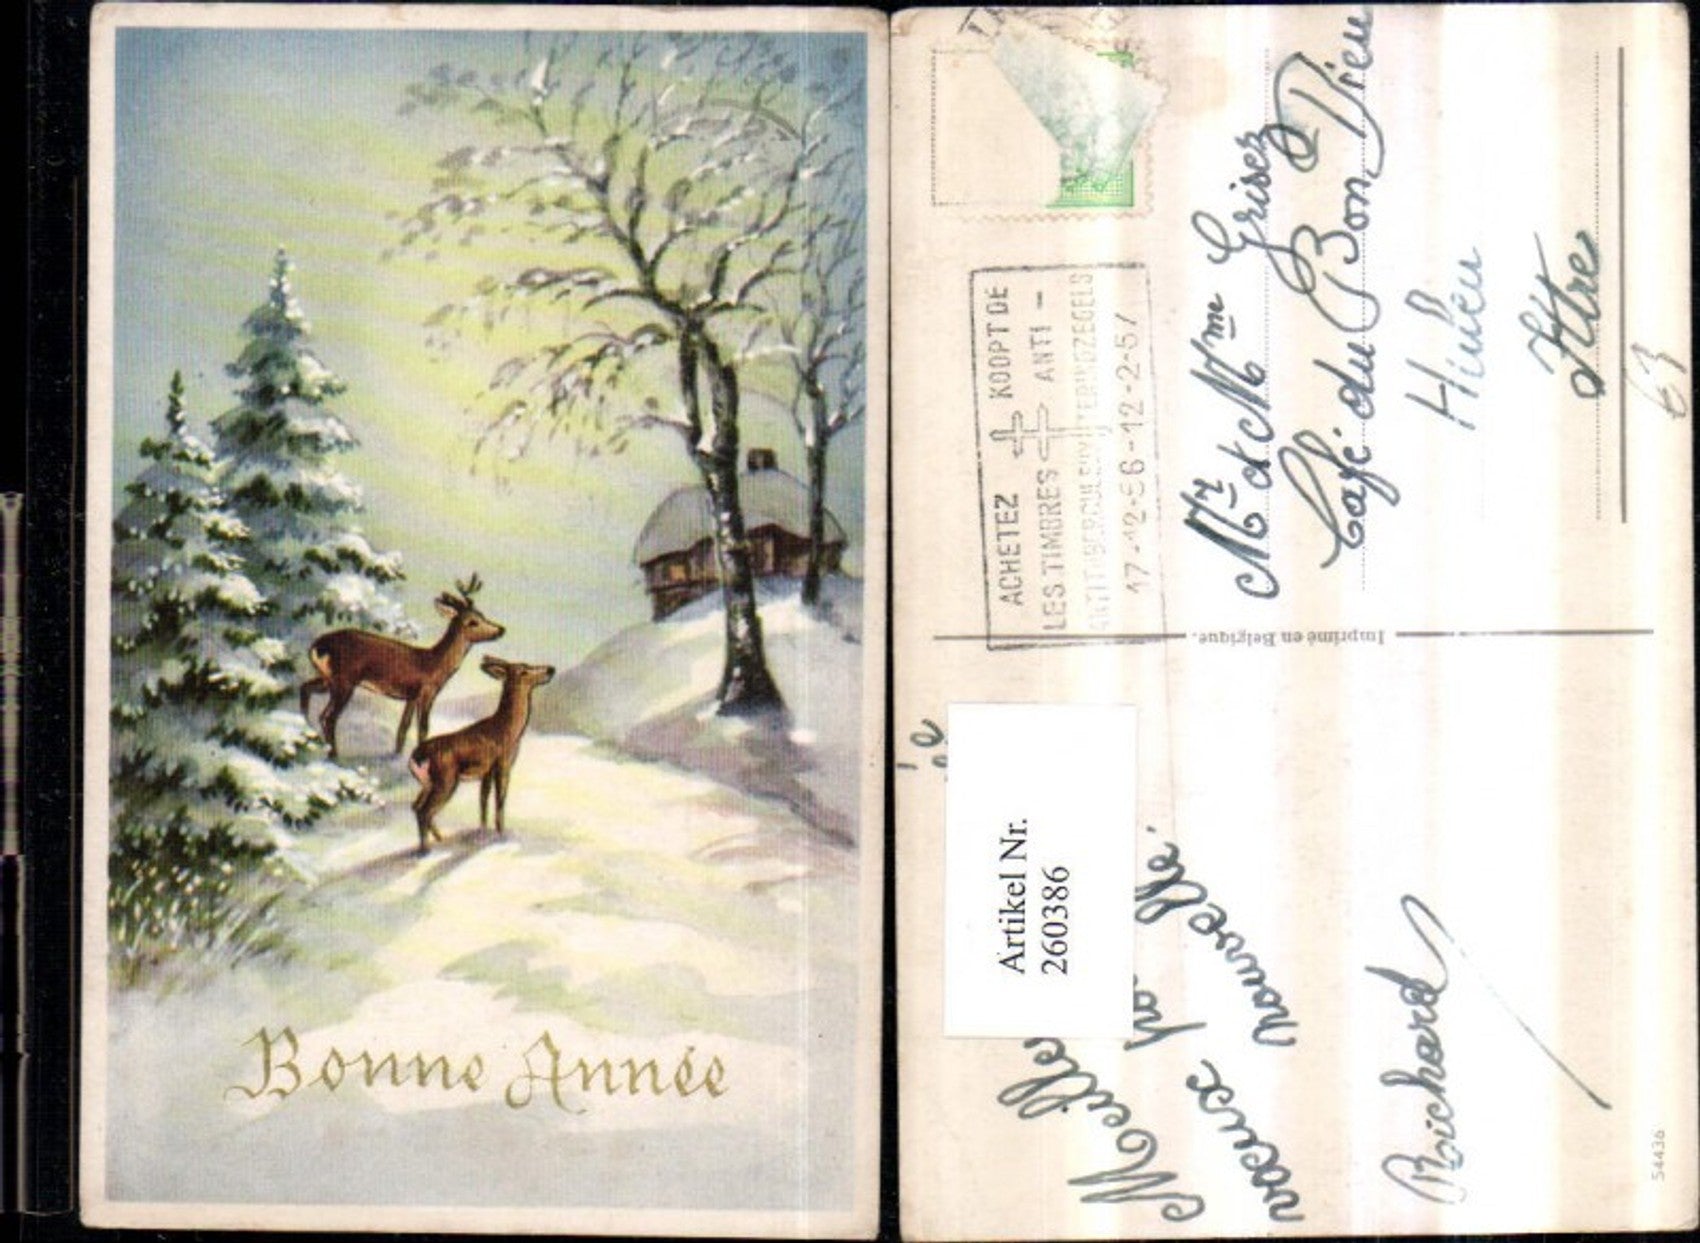 Bonne Année
ACHETEZ KOOPT DE
LES TIMBRES ANTI -
ANTITUBERCULEUX TERINGZEGELS
17-12-56-12-2-57
Mr et Mme Grisez
Café du Bon Dieu
Ittre
63
Imprimé en Belgique.
Artikel Nr.
260386
Meille
vœux
nouvelle
Brichard
54436